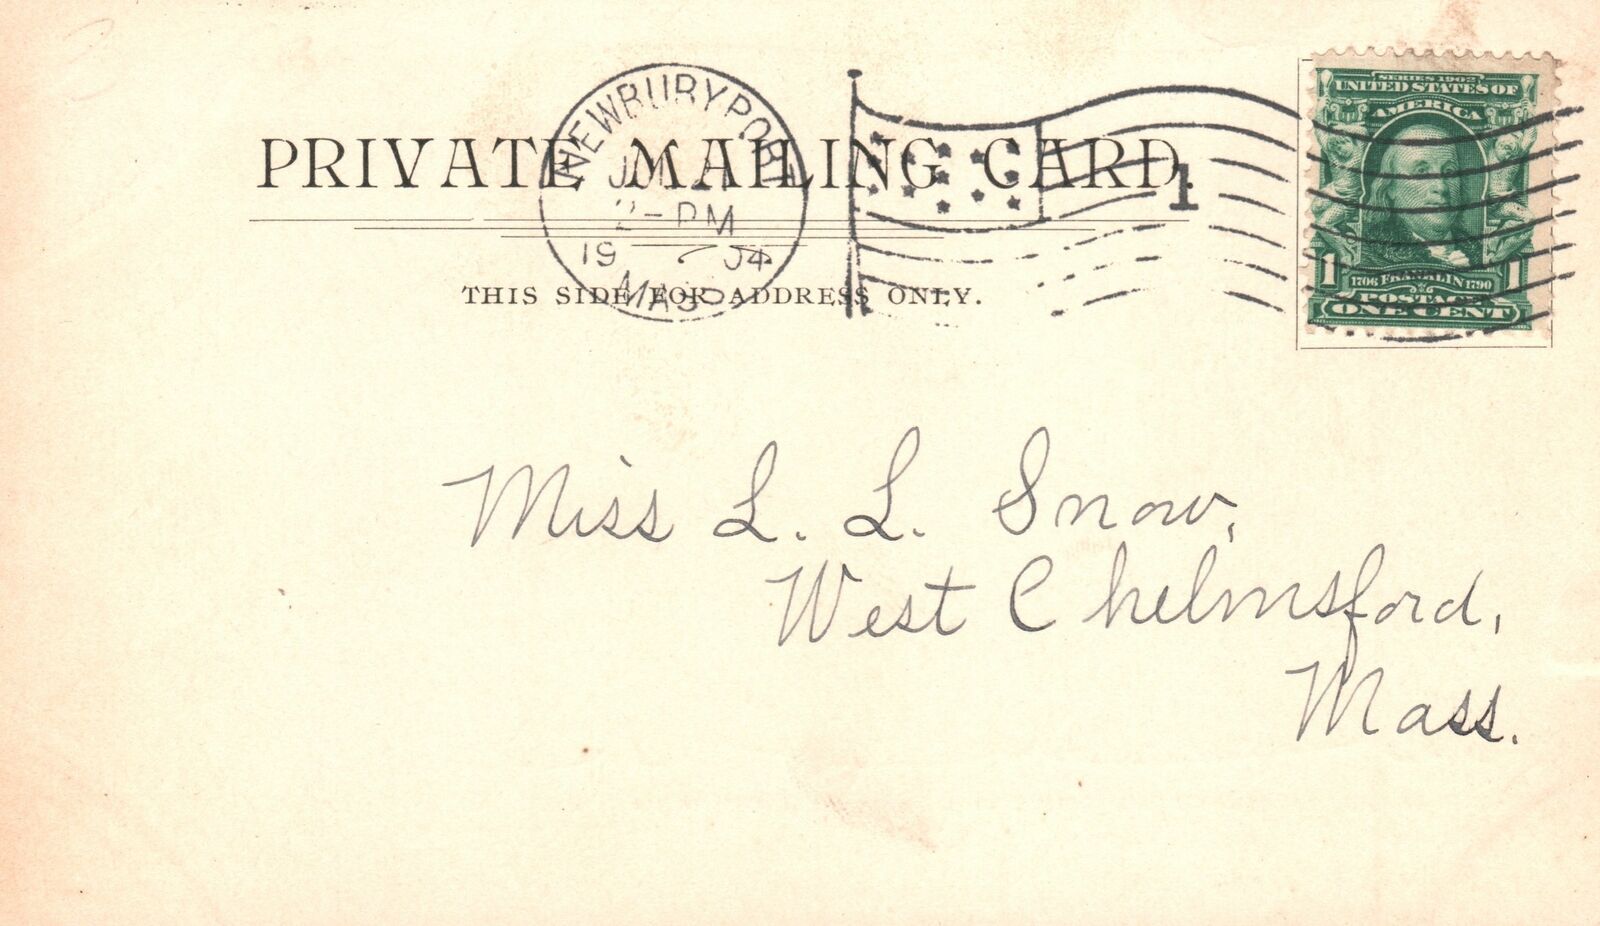 NEWBURYPORT
2-PM
1904
MASS
1
SERIES 1902
UNITED STATES OF
AMERICA
1 1706 FRANKLIN 1790 1
POSTAGE
ONE CENT
PRIVATE MAILING CARD.
THIS SIDE FOR ADDRESS ONLY.
Miss L. L. Snow,
West Chelmsford,
Mass.